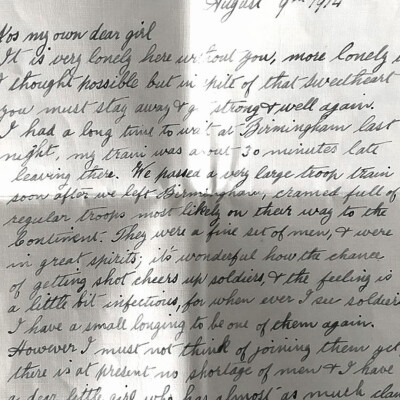 August 9th 1914
my own dear girl
It is very lonely here without you, more lonely
I thought possible but in spite of that sweetheart
you must stay away & get strong & well again.
I had a long time to wait at Birmingham last
night, my train was about 30 minutes late
leaving there. We passed a very large troop train
soon after we left Birmingham, cramed full of
regular troops most likely on their way to the
Continent. They were a fine set of men, & were
in great spirits; it's wonderful how the chance
of getting shot cheers up soldiers, & the feeling is
a little bit infectious, for when ever I see soldiers
I have a small longing to be one of them again.
However I must not think of joining them yet,
there is at present no shortage of men & I have
a dear little girl who has almost as much claim